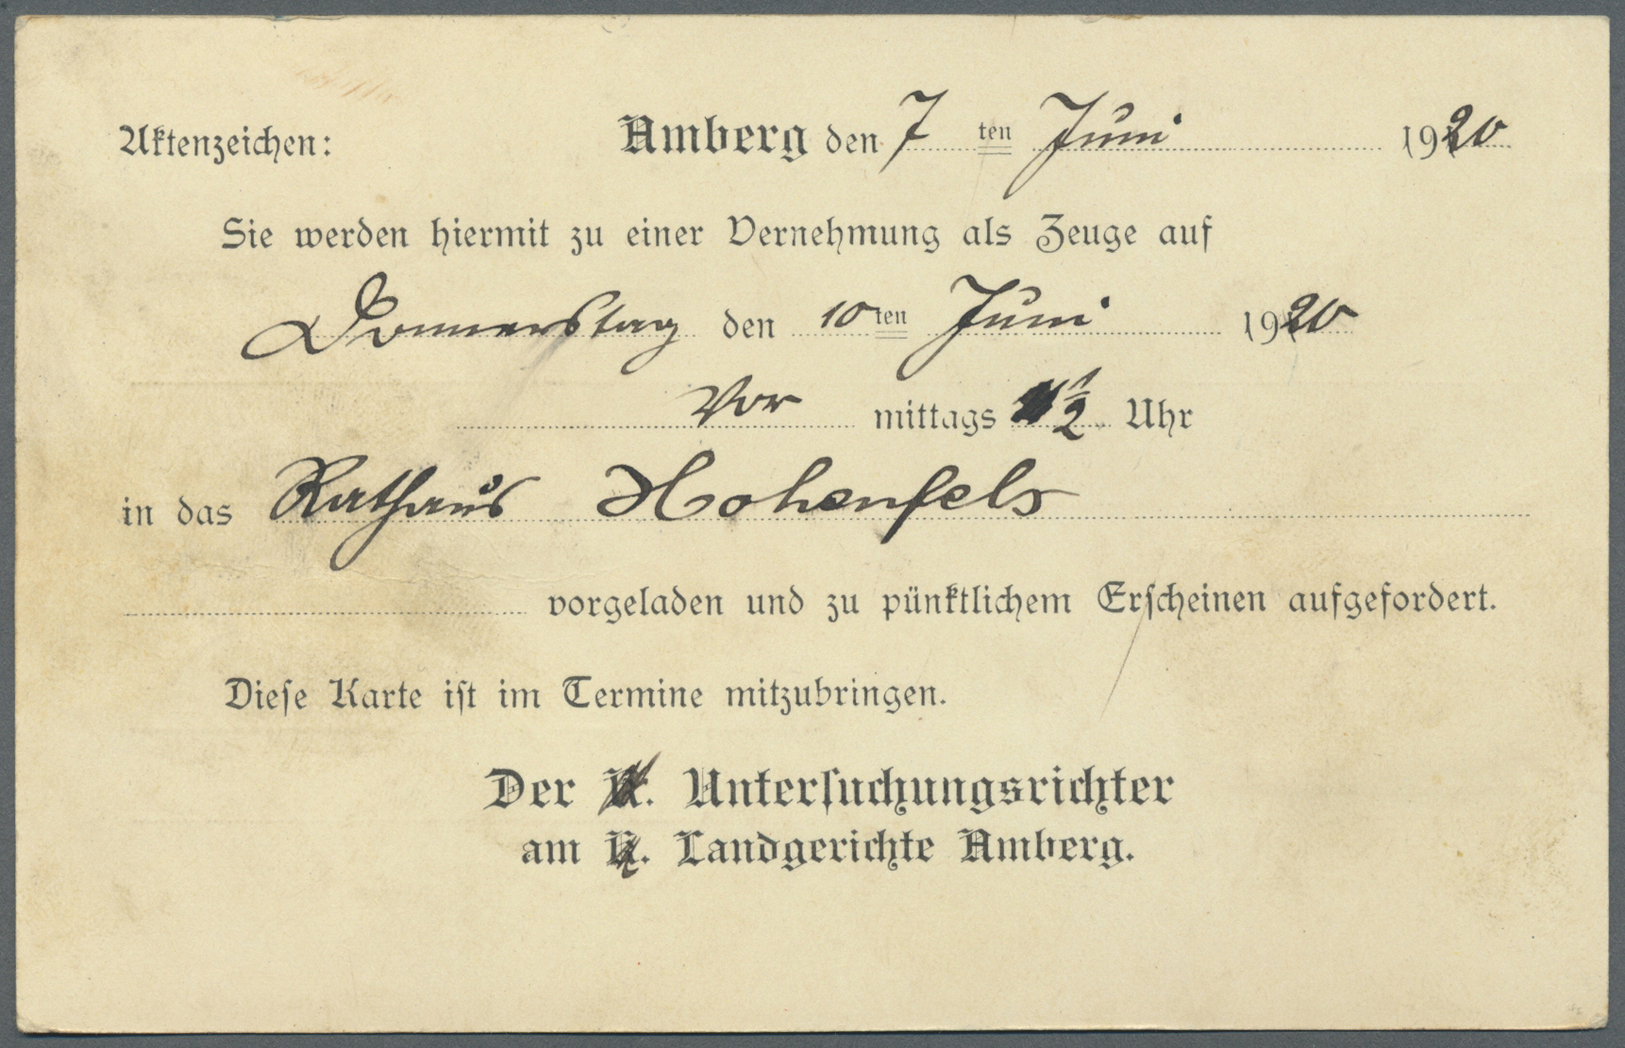 Aktenzeichen: Amberg den 7 ten Juni 1920
Sie werden hiermit zu einer Vernehmung als Zeuge auf
Donnerstag den 10 ten Juni 1920
Vor mittags ½ Uhr
in das Rathaus Hohenfels
vorgeladen und zu pünktlichem Erscheinen aufgefordert.
Diese Karte ist im Termine mitzubringen.
Der K. Untersuchungsrichter
am K. Landgerichte Amberg.